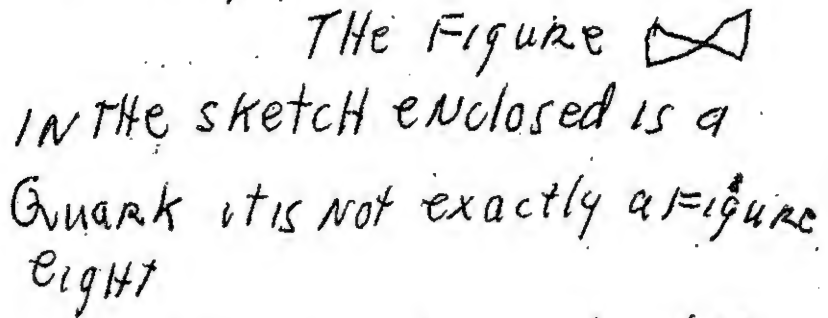 THE FIGURE
IN THE sketcH eNclosed is a
QuaRk it is Not exactly a FiguRe
eigHt